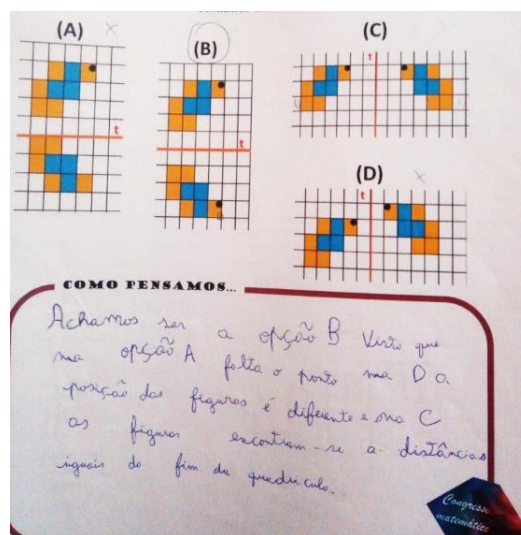 (A)
(B)
(C)
(D)
t
t
t
t
COMO PENSAMOS...
Achamos ser a opção B Visto que
na opção A falta o ponto na D a
posição das figuras é diferente e na C
as figuras encontram-se a distâncias
iguais do fim da quadrícula...
Congresso
matemático